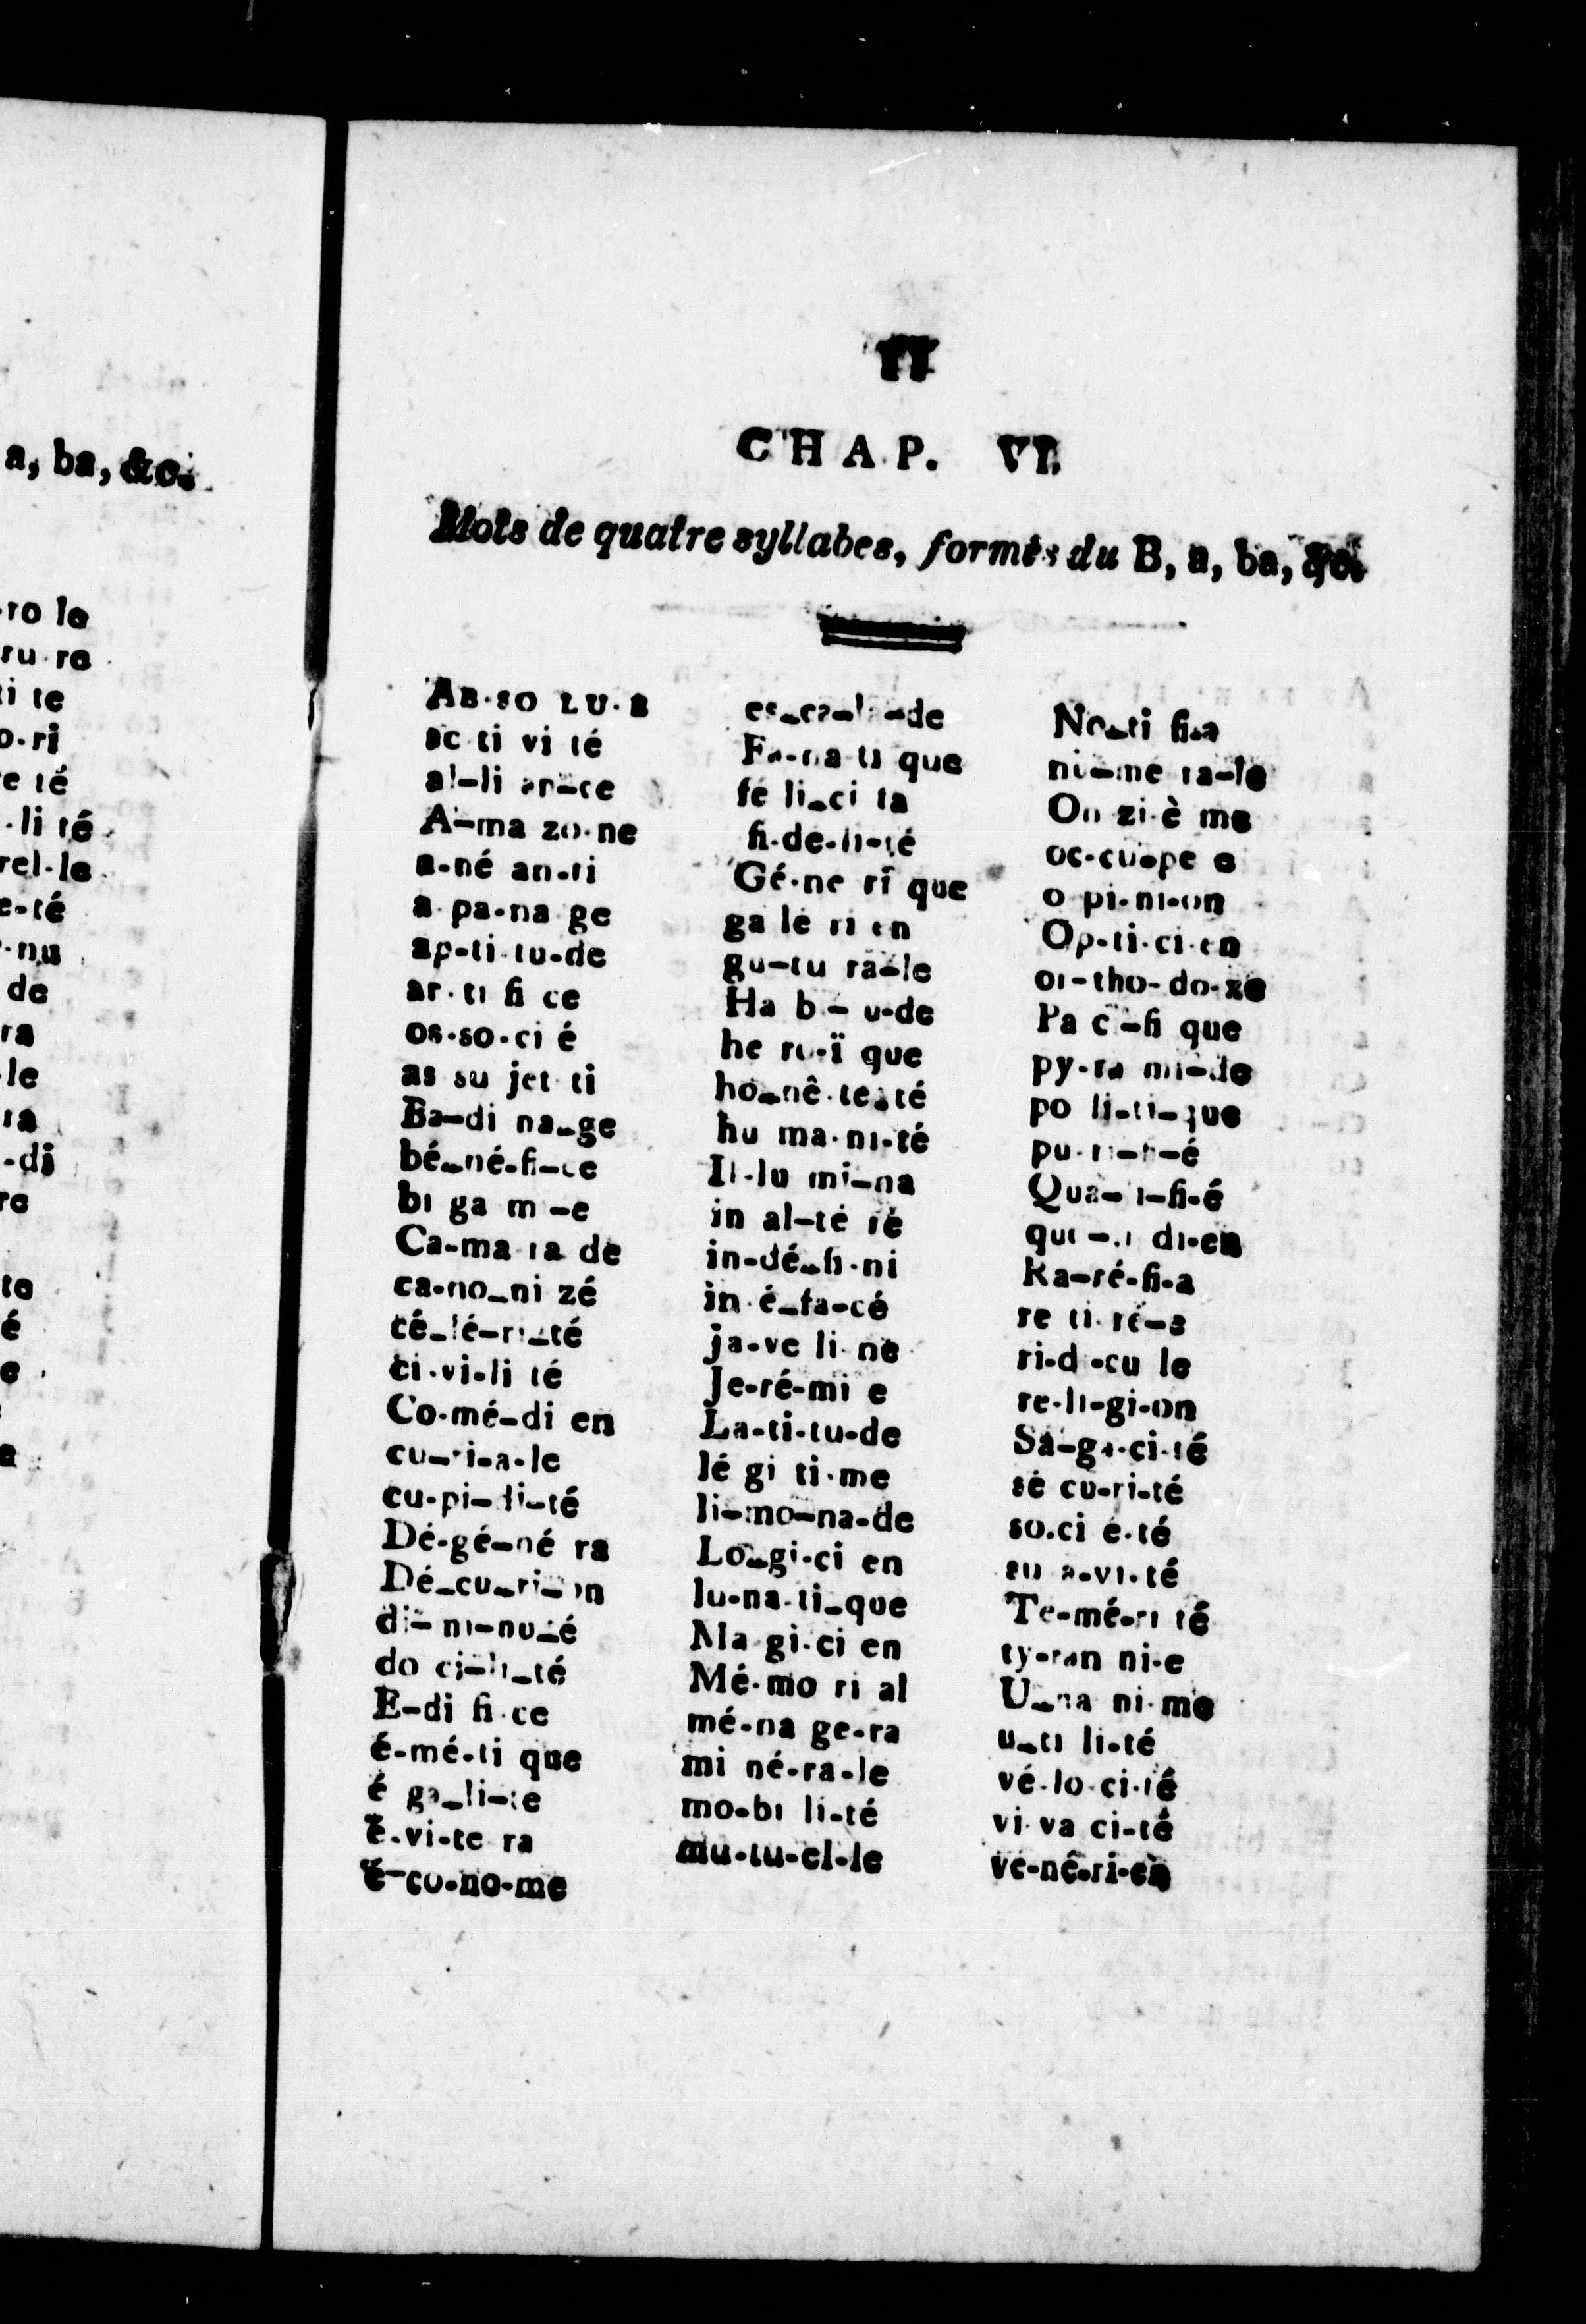 a, ba, &c.
ro le
ru-re
ti te
o-ri
e té
li té
rel-le
e-té
nu
de
ra
le
ra
-di
re
te
é
e
11
CHAP. VI.
Mots de quatre syllabes, formés du B, a, ba, &c.
AB-SO LU-E
ac ti vi té
al-li an-ce
A-ma zo-ne
a-né an-ti
a pa-na ge
ap-ti-tu-de
ar-ti fi ce
os-so-ci é
as su jet ti
Ba-di na-ge
bé-né-fi-ce
bi ga m -e
Ca-ma ra de
ca-no-ni zé
cé-lé-ri-té
ci-vi-li té
Co-mé-di en
cu-ri-a-le
cu-pi-di-té
Dé-gé-né ra
Dé-cu-ri-on
di- ni-nu-é
do ci-li-té
E-di fi-ce
é-mé-ti que
é ga-li-te
É-vi-te ra
é-co-no-me
es-ca-la-de
Fa-na ti que
fé li-ci ta
fi-de-li-té
Gé-ne ri que
ga lé ri en
gu-tu ra-le
Ha b - u-de
he ro-ï que
ho-nê-te-té
hu ma-ni-té
Il-lu mi-na
in al-té ré
in-dé-fi-ni
in é-fa-cé
ja-ve li-ne
Je-ré-mi e
La-ti-tu-de
lé gi ti-me
li-mo-na-de
Lo-gi-ci en
lu-na-ti-que
Ma gi-ci en
Mé-mo ri al
mé-na ge-ra
mi né-ra-le
mo-bi li-té
mu-tu-el-le
No-ti fi-a
nu-me ra-le
On zi-è me
oc-cu-pe e
o pi-ni-on
Op-ti-ci-en
or-tho-do-xe
Pa ci-fi que
py-ra mi-de
po li-ti-que
pu-ri-fi-é
Qua- i-fi-é
quo-ti di-en
Ra-ré-fi-a
re ti-ré-s
ri-d -cu le
re-li-gi-on
Sa-ga-ci-té
sé cu-ri-té
so-ci é-té
su a-vi-té
Te-mé-ri té
ty-ran ni-e
U-na ni-me
u-ti li-té
vé-lo-ci-té
vi va ci-té
vé-né-ri-en